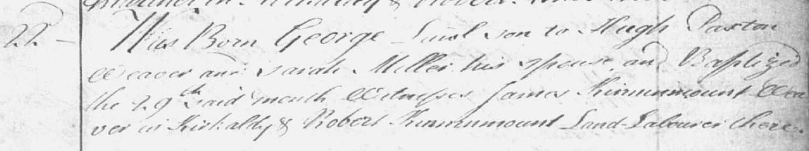 22 — Was Born George Lawl son to Hugh Paxton
Weaver and Sarah Miller his spouse and Baptized
the 29th said month Witnesses James Kinninmount Wea
ver in Kirkaldy & Robert Kinninmount Land Labourer there